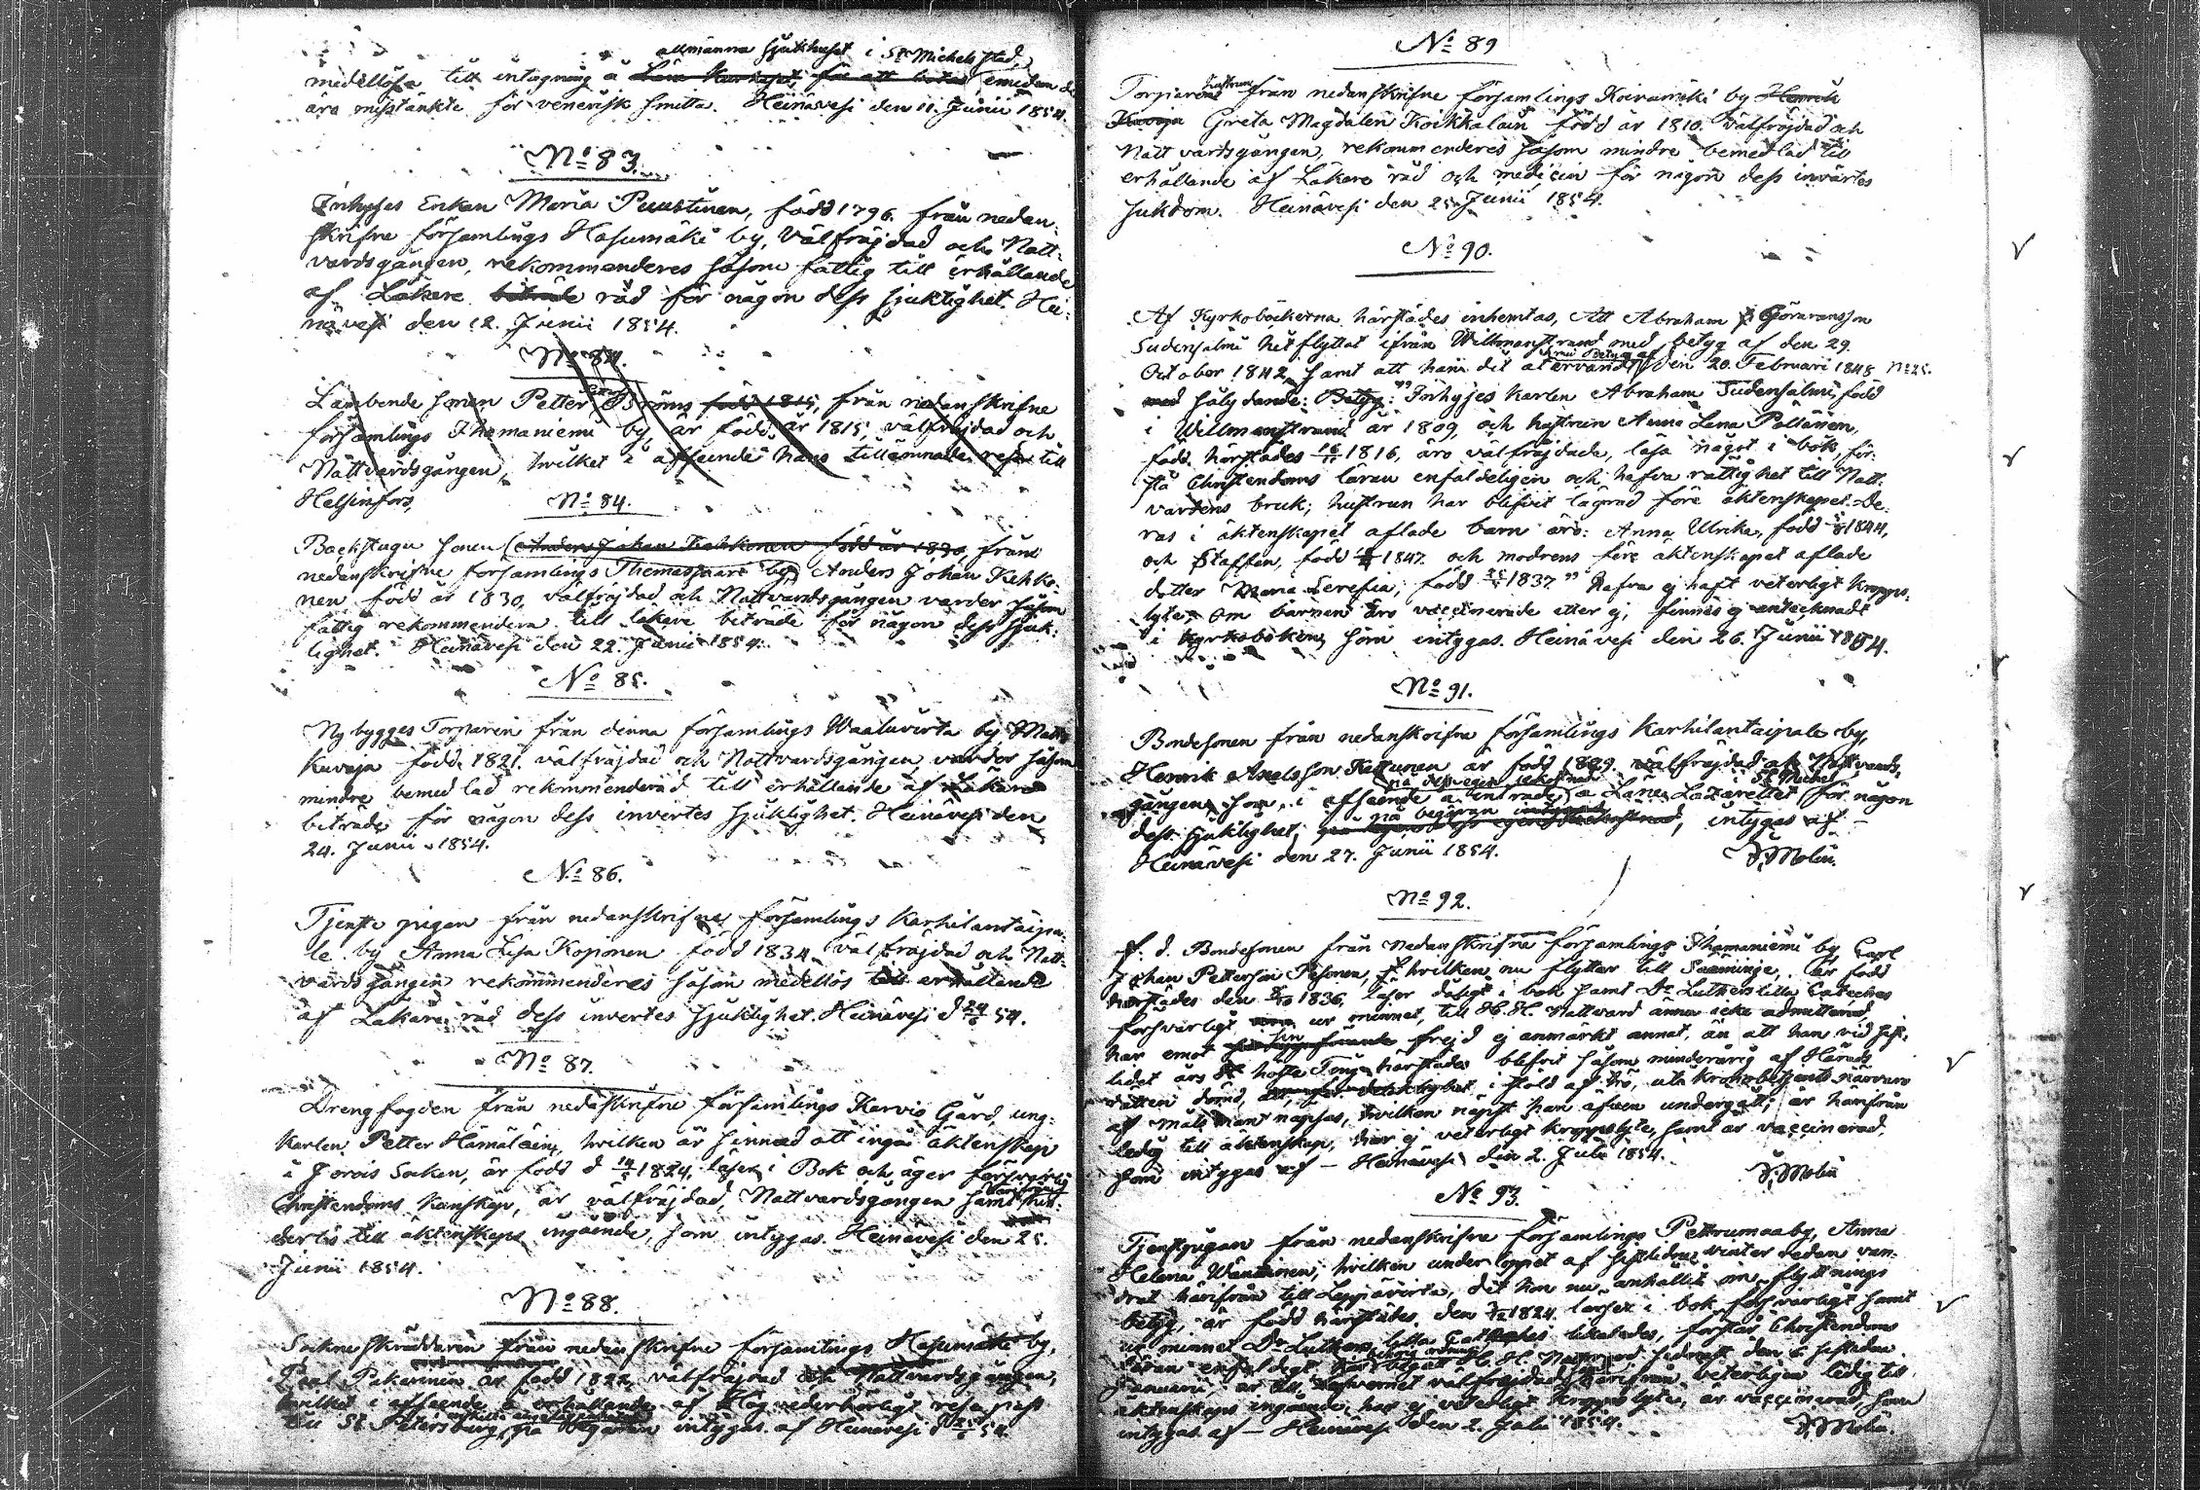 allmänna sjukhuset i St Michels stad,
medellösa till intagning å emedan de
äro misstänkte för venerisk smitta. Heinävesi den 11. Junii 1854.
No 83.
Inhyses Enkan Maria Puustinen, född 1796. från nedan-
skrifne församlings Hasumäki by, välfräjdad och Natt-
vardsgången, rekommenderes såsom fattig till erhållande
af Läkare råd för någon dess sjuklighet. Hei-
nävesi den 12. Junii 1854.
No 84.
Landbonde sonen Petter född 1815, från nedanskrifne
församlings Ihamaniemi by, är född år 1815, välfräjdad och
Nattvardsgången, hvilket i afseende å hans tillämnade resa till
Helsinfors,
No 84.
Backstugu sonen (Anders Johan Kehkonen född år 1830, från
nedanskrifne församlings by, Anders Johan Kehko-
nen född år 1830, välfräjdad och Nattvardsgången varder såsom
fattig rekommendera till läkare beträde för någon dess sjuk-
lighet. Heinävesi den 22. Junii 1854.
No 85.
Nybygges Torparen från denna församlings Waaluvirta by Matts
Kuvaja född 1821. välfräjdad och Nattvardsgången, varder såsom
mindre bemedlad rekommenderad till erhållande af Läkare
beträde för någon dess invertes sjuklighet. Heinävesi den
24. Junii 1854.
No 86.
Tjenste pigan från nedanskrifne församlings Karhilantaipa-
le by Anna Lisa Koponen född 1834. välfräjdad och Natt-
vardsgången rekommenderes såsom medellös till erhållande
af Läkare råd dess invertes sjuklighet. Heinävesi d 24/6 54.
No 87.
Drengfogden från nedanskrifne församlings Karvio Gård, ung-
karlen Petter Hämäläin, hvilken är sinnad att ingå äktenskap
i Jorois Socken, är född d 1824, läser i Bok och äger försvarlig
Christendoms kunskap, är välfräjdad, Nattvardsgången samt
till äktenskaps ingående, som intygas. Heinävesi den 25.
Junii 1854.
No 88.
Sockneskräddaren från nedanskrifne församlings Hasumäki by,
Paul Pakarinen är född 1822, välfräjdad och Nattvardsgången,
hvilket i afseende å erhållande af Högvederbörligt resepass
till St Petersburg, på begäran intygas. af Heinävesi d 54.
No 89
Torparens hustrun från nedanskrifne församlings Koivumäki by Henrik
Kuvaja Greta Magdalen Koikkalain född år 1810. välfräjdad och
Nattvardsgången, rekommenderes såsom mindre bemedlad till
erhållande af Läkare råd och medicin för någon dess invärtes
sjukdom. Heinävesi den 25 Junii 1854.
No 90.
Af Kyrkoböckerna härstädes inhemtas, Att Abraham Göransson
Sudensalmi hit flyttat ifrån Willmanstrand med betyg af den 29.
October 1842, samt att han dit återvändt den 20. Februari 1848 No 25.
så lydande: Betyg: "Inhyses karlen Abraham Sudensalmi, född
i Willmanstrand år 1809, och hustrun Anna Lena Pöllänen,
född härstädes 1816, äro välfräjdade, läsa något i bok, för-
stå Christendoms läran enfaldeligen och hafva rättighet till Natt-
vardens bruk; hustrun har blifvit lägrad före äktenskapet. De-
ras i äktenskapet aflade barn äro: Anna Ulrika, född 1844,
och Staffan, född 1847 och modrens före äktenskapet aflade
dotter Maria Serefia, född 1837." Hafva ej haft veterligt kropps-
lyte. Om barnen äro vaccinerade eller ej, finnes ej antecknadt
i Kyrkoböcken, som intygas. Heinävesi den 26. Junii 1854.
No 91.
Bondesonen från nedanskrifne församlings Karhilantaipale by,
Henrik Axelsson Kettunen är född 1829. välfräjdad och Nattvards-
gången, som, i afseende å inträde å Läne Lazarettet i St Michel för någon
dess sjuklighet, på begäran intygas af
Heinävesi den 27. Junii 1854.
J. Molin.
No 92.
f. d. Bondesonen från nedanskrifne församlings Ihamaniemi by Carl
Johan Pettersson Pesonen, hvilken nu flyttar till Sääminge, är född
härstädes den 1836, läser dåligt i bok samt Dr Luthers lilla Cateches
försvarligt ur minnet, till H. H. Nattvard ännu icke admitterad,
har emot sin frejd ej anmärkt annat, än att han vid sist-
ledet års höste Ting härstädes blifvit såsom minderårig af Härads
rätten dömd, i stöld af Krono betjents närvaro
af målsman nappas, hvilken näpst han äfven undergått; är härifrån
ledig till äktenskap, har ej veterligt kroppslyte, samt är vaccinerad,
som intygas af - Heinävesi den 2. Julii 1854.
J. Molin
No 93.
Tjenstpigan från nedanskrifne församlings Petrumaa by, Anna
Helena, hvilken under loppet af sistledne vinter redan van-
drat härifrån till Leppävirta, det hon nu anhållit om flyttnings
betyg, är född härstädes den 1824, läser i bok försvarligt samt
ur minnet Dr Luthers lilla Cateches, förstår Christendoms
läran enfaldigt, H. H. Nattvard sednast den 6. sistleden
Januarii, är välfräjdad, härifrån veterligen ledig till
äktenskaps ingående, har ej veterligt kroppslyte, är vaccinerad, som
intygas af - Heinävesi den 2. Julii 1854.
J. Molin.